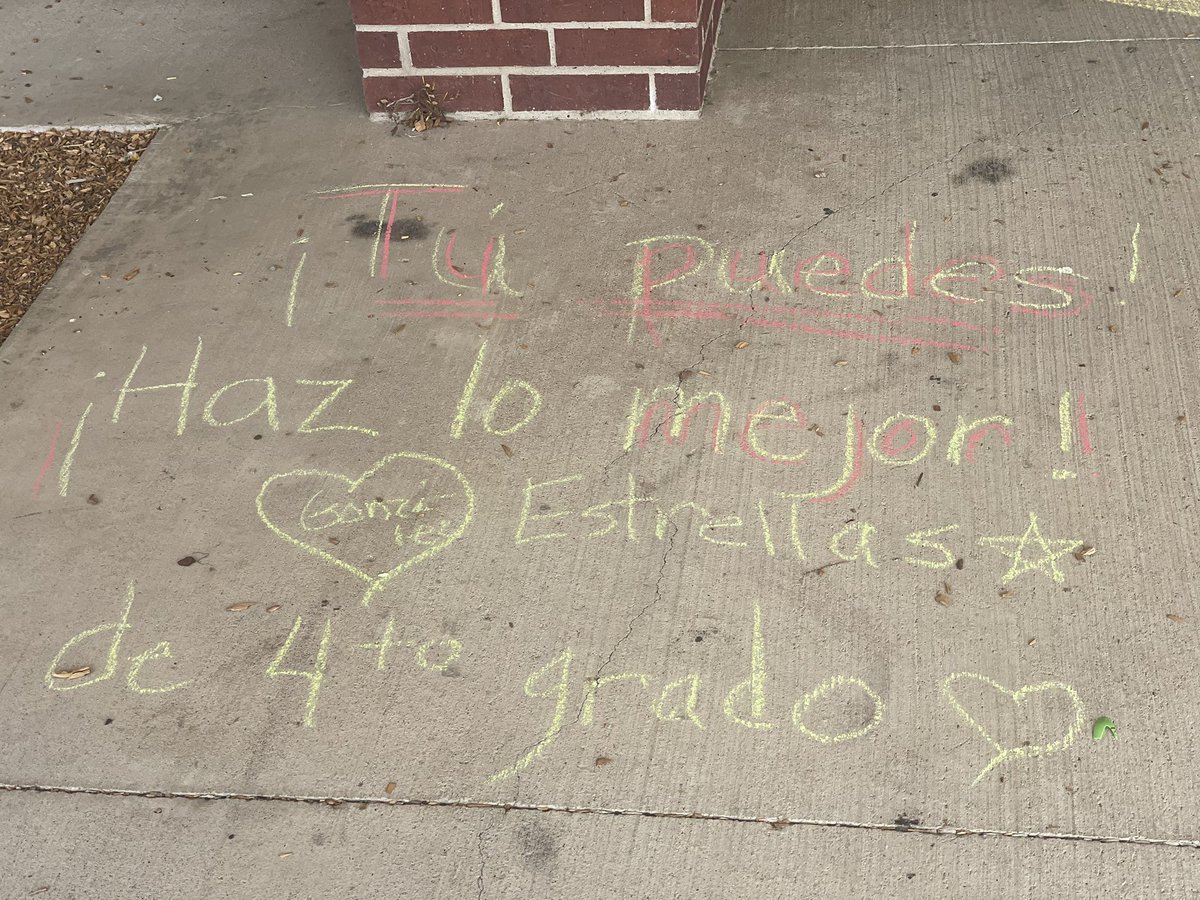 ¡Tú puedes!
¡Haz lo mejor!
Estrellas
de 4to grado